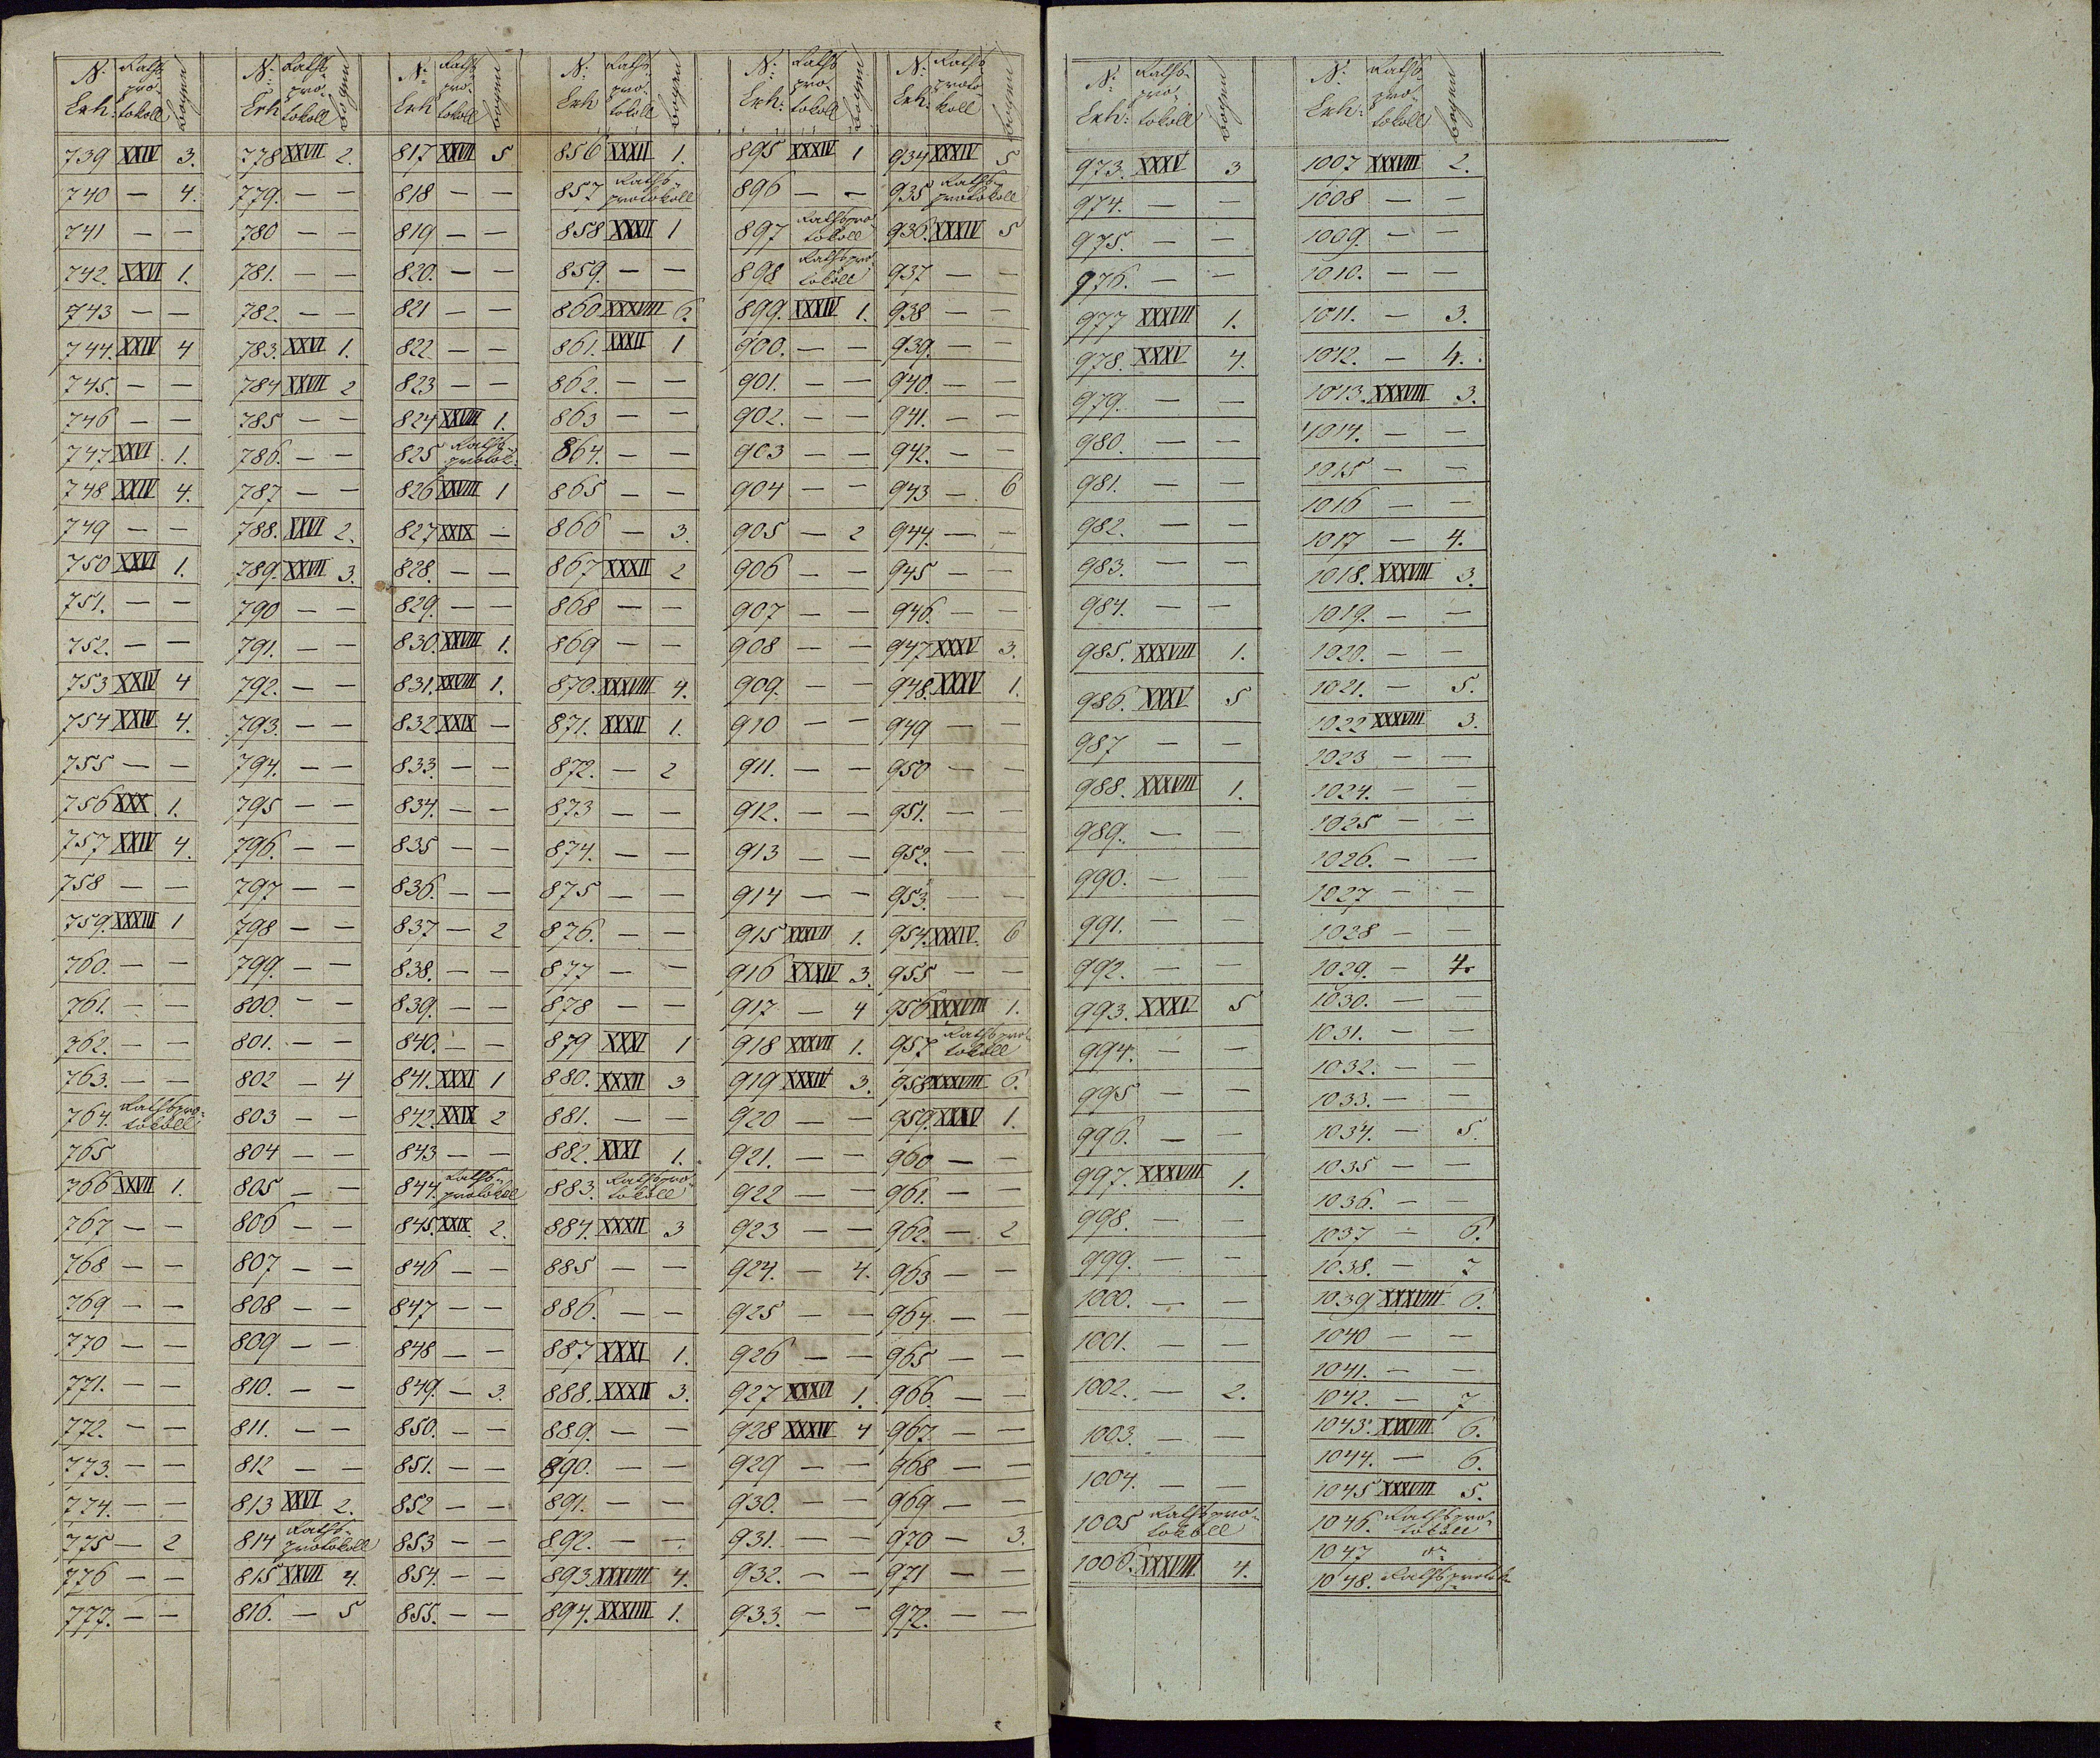 N: Exh: Rathsprotokoll Bogen
739 XXIV 3.
740 — 4.
741 — —
742. XXVI 1.
743 — —
744. XXIV 4
745. — —
746 — —
747 XXVI 1.
748. XXIV 4.
749 — —
750 XXVI 1.
751. — —
752. — —
753 XXIV 4
754 XXIV 4.
755 — —
756 XXX 1.
757 XXIV 4.
758 — —
759. XXXIII 1
760. — —
761. — —
762. — —
763. — —
764. Rathsprotokoll
765
766 XXVII 1.
767 — —
768 — —
769 — —
770 — —
771. — —
772. — —
773. — —
774. — —
775 — 2
776 — —
777. — —
N: Exh Rathsprotokoll Bogen
778 XXVII 2.
779. — —
780 — —
781. — —
782. — —
783. XXVI 1.
784 XXVII 2
785 — —
786. — —
787 — —
788. XXVI 2.
789. XXVII 3.
790 — —
791. — —
792. — —
793. — —
794. — —
795 — —
796. — —
797 — —
798 — —
799. — —
800. — —
801. — —
802 — 4
803 — —
804 — —
805 — —
806 — —
807 — —
808 — —
809 — —
810. — —
811. — —
812 — —
813 XXVI 2.
814 Rathsprotokoll
815 XXVII 4.
816. — 5
N: Exh Rathsprotokoll Bogen
817 XXVII 5
818 — —
819 — —
820. — —
821 — —
822. — —
823 — —
824 XXVIII 1.
825 Rathsprotok.
826 XXVIII 1
827 XXIX —
828. — —
829. — —
830. XXVIII 1.
831. XXVIII 1.
832. XXIX —
833. — —
834. — —
835 — —
836. — —
837 — 2
838. — —
839. — —
840. — —
841. XXXI 1
842. XXIX 2
843 — —
844. Rathsprotokoll
845. XXIX. 2.
846 — —
847 — —
848 — —
849. — 3.
850. — —
851. — —
852 — —
853 — —
854. — —
855. — —
N: Exh Rathsprotokoll Bogen
856 XXXII 1.
857 Rathsprotokoll
858 XXXII 1
859. — —
860 XXXVIII 6.
861. XXXII 1
862. — —
863 — —
864. — —
865 — —
866 — 3.
867 XXXII 2
868 — —
869 — —
870. XXXVIII 4.
871. XXXII 1.
872. — 2
873 — —
874. — —
875 — —
876. — —
877 — —
878 — —
879 XXXI 1
880. XXXII 3
881. — —
882. XXXI 1.
883. Rathsprotokoll
884. XXXII 3
885 — —
886. — —
887 XXXI 1.
888. XXXII 3.
889. — —
890. — —
891. — —
892. — —
893. XXXVIII 4.
894. XXXIIII 1.
N: Exh: Rathsprotokoll Bogen
895 XXXIV 1
896 — —
897 Rathsprotokoll
898 Rathsprotokoll
899. XXXIV 1.
900. — —
901. — —
902. — —
903 — —
904 — —
905 — 2
906 — —
907 — —
908 — —
909. — —
910 — —
911. — —
912. — —
913 — —
914 — —
915 XXXVII 1.
916 XXXIV 3.
917 — 4
918 XXXVII 1.
919 XXXIV 3.
920 — —
921. — —
922 — —
923 — —
924. — 4.
925 — —
926 — —
927 XXXVI 1.
928 XXXIV 4
929 — —
930. — —
931. — —
932. — —
933. — —
N: Exh: Rathsprotokoll Bogen
934 XXXIV 5
935 Rathsprotokoll
936. XXXIV 5
937 — —
938 — —
939. — —
940. — —
941. — —
942. — —
943 — 6
944. — —
945 — —
946. — —
947 XXXV 3.
948. XXXV 1.
949 — —
950 — —
951. — —
952. — —
953. — —
954. XXXIV. 6
955 — —
956 XXXVIII 1.
957 Rathsprotokoll
958 XXXVIII 6.
959. XXXV 1.
960 — —
961. — —
962. — 2
963 — —
964. — —
965 — —
966. — —
967. — —
968 — —
969 — —
970 — 3.
971 — —
972. — —
N: Exh: Rathsprotokoll Bogen
973. XXXV 3
974. — —
975. — —
976. — —
977 XXXVII 1.
978. XXXV 4.
979. — —
980. — —
981. — —
982. — —
983. — —
984. — —
985. XXXVIII 1.
986. XXXV 5
987 — —
988. XXXVIII 1.
989. — —
990. — —
991. — —
992. — —
993. XXXV 5
994. — —
995 — —
996. — —
997. XXXVIII 1.
998. — —
999. — —
1000. — —
1001. — —
1002. — 2.
1003. — —
1004. — —
1005 Rathsprotokoll
1006. XXXVIII 4.
N: Exh: Rathsprotokoll Bogen
1007 XXXVIII 2.
1008 — —
1009. — —
1010. — —
1011. — 3.
1012. — 4.
1013. XXXVIII 3.
1014. — —
1015 — —
1016 — —
1017 — 4.
1018. XXXVIII 3.
1019. — —
1020. — —
1021. — 5.
1022 XXXVIII 3.
1023 — —
1024. — —
1025 — —
1026. — —
1027 — —
1028 — —
1029. — 4.
1030. — —
1031. — —
1032. — —
1033. — —
1034. — 5.
1035 — —
1036. — —
1037 — 6.
1038. — 7
1039 XXXVIII 6.
1040 — —
1041. — —
1042. — 7
1043. XXXVIII 6.
1044. — 6.
1045 XXXVIII 5.
1046. Rathsprotokoll
1047
1048. Rathsprotok.